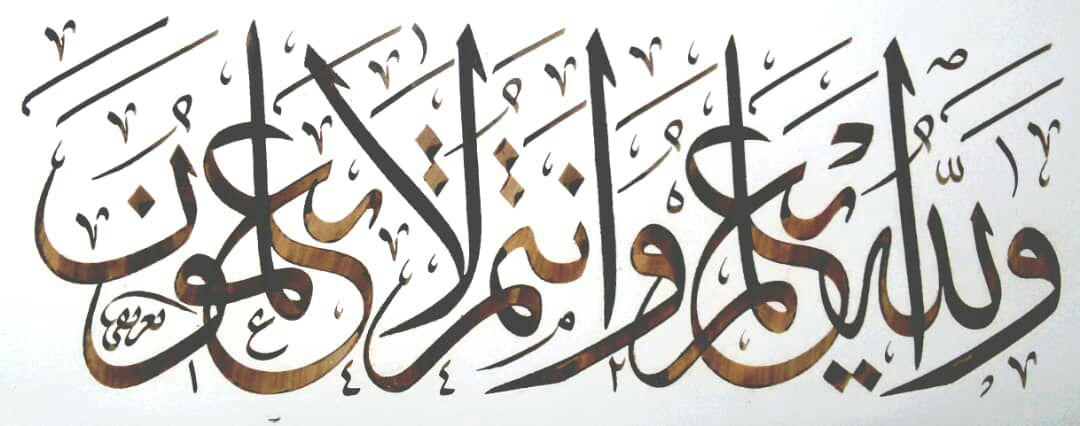 وَاللّٰهُ يَعْلَمُ وَأَنْتُمْ لَا تَعْلَمُونَ
١٤٤٢